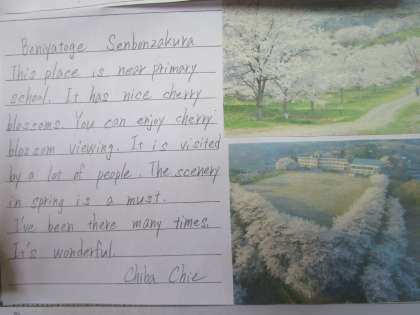 Beniyatoge Senbonzakura
This place is near primary
school. It has nice cherry
blossoms. You can enjoy cherry
blossom viewing. It is visited
by a lot of people. The scenery
in spring is a must.
I've been there many times.
It's wonderful.
Chiba Chie